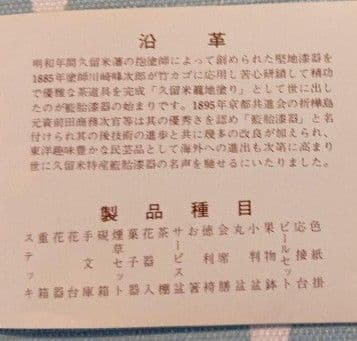 沿革
明和年間久留米藩の抱塗師によって創められた堅地漆器を
1885年塗師川崎峰次郎が竹カゴに応用し苦心研鑽して精功
で優雅な茶道具を完成「久留米籠地塗り」として世に出し
たのが籃胎漆器の始まりです。1895年京都共進会の折樺島
元資前田商務次官等は其の優秀さを認め「籃胎漆器」と名
付けられ其の後技術の進歩と共に幾多の改良が加えられ、
東洋趣味豊かな民芸品として海外への進出も次第に高まり
世に久留米特産籃胎漆器の名声を馳せるにいたりました。
製品種目
色紙掛
応接台
ビールセット
果物鉢
小判盆
丸盆
会席膳
徳利袴
お箸
サービス盆
茶棚
花入
菓子器
煙草セット
硯箱
手文庫
花台
花器
重箱
ステッキ